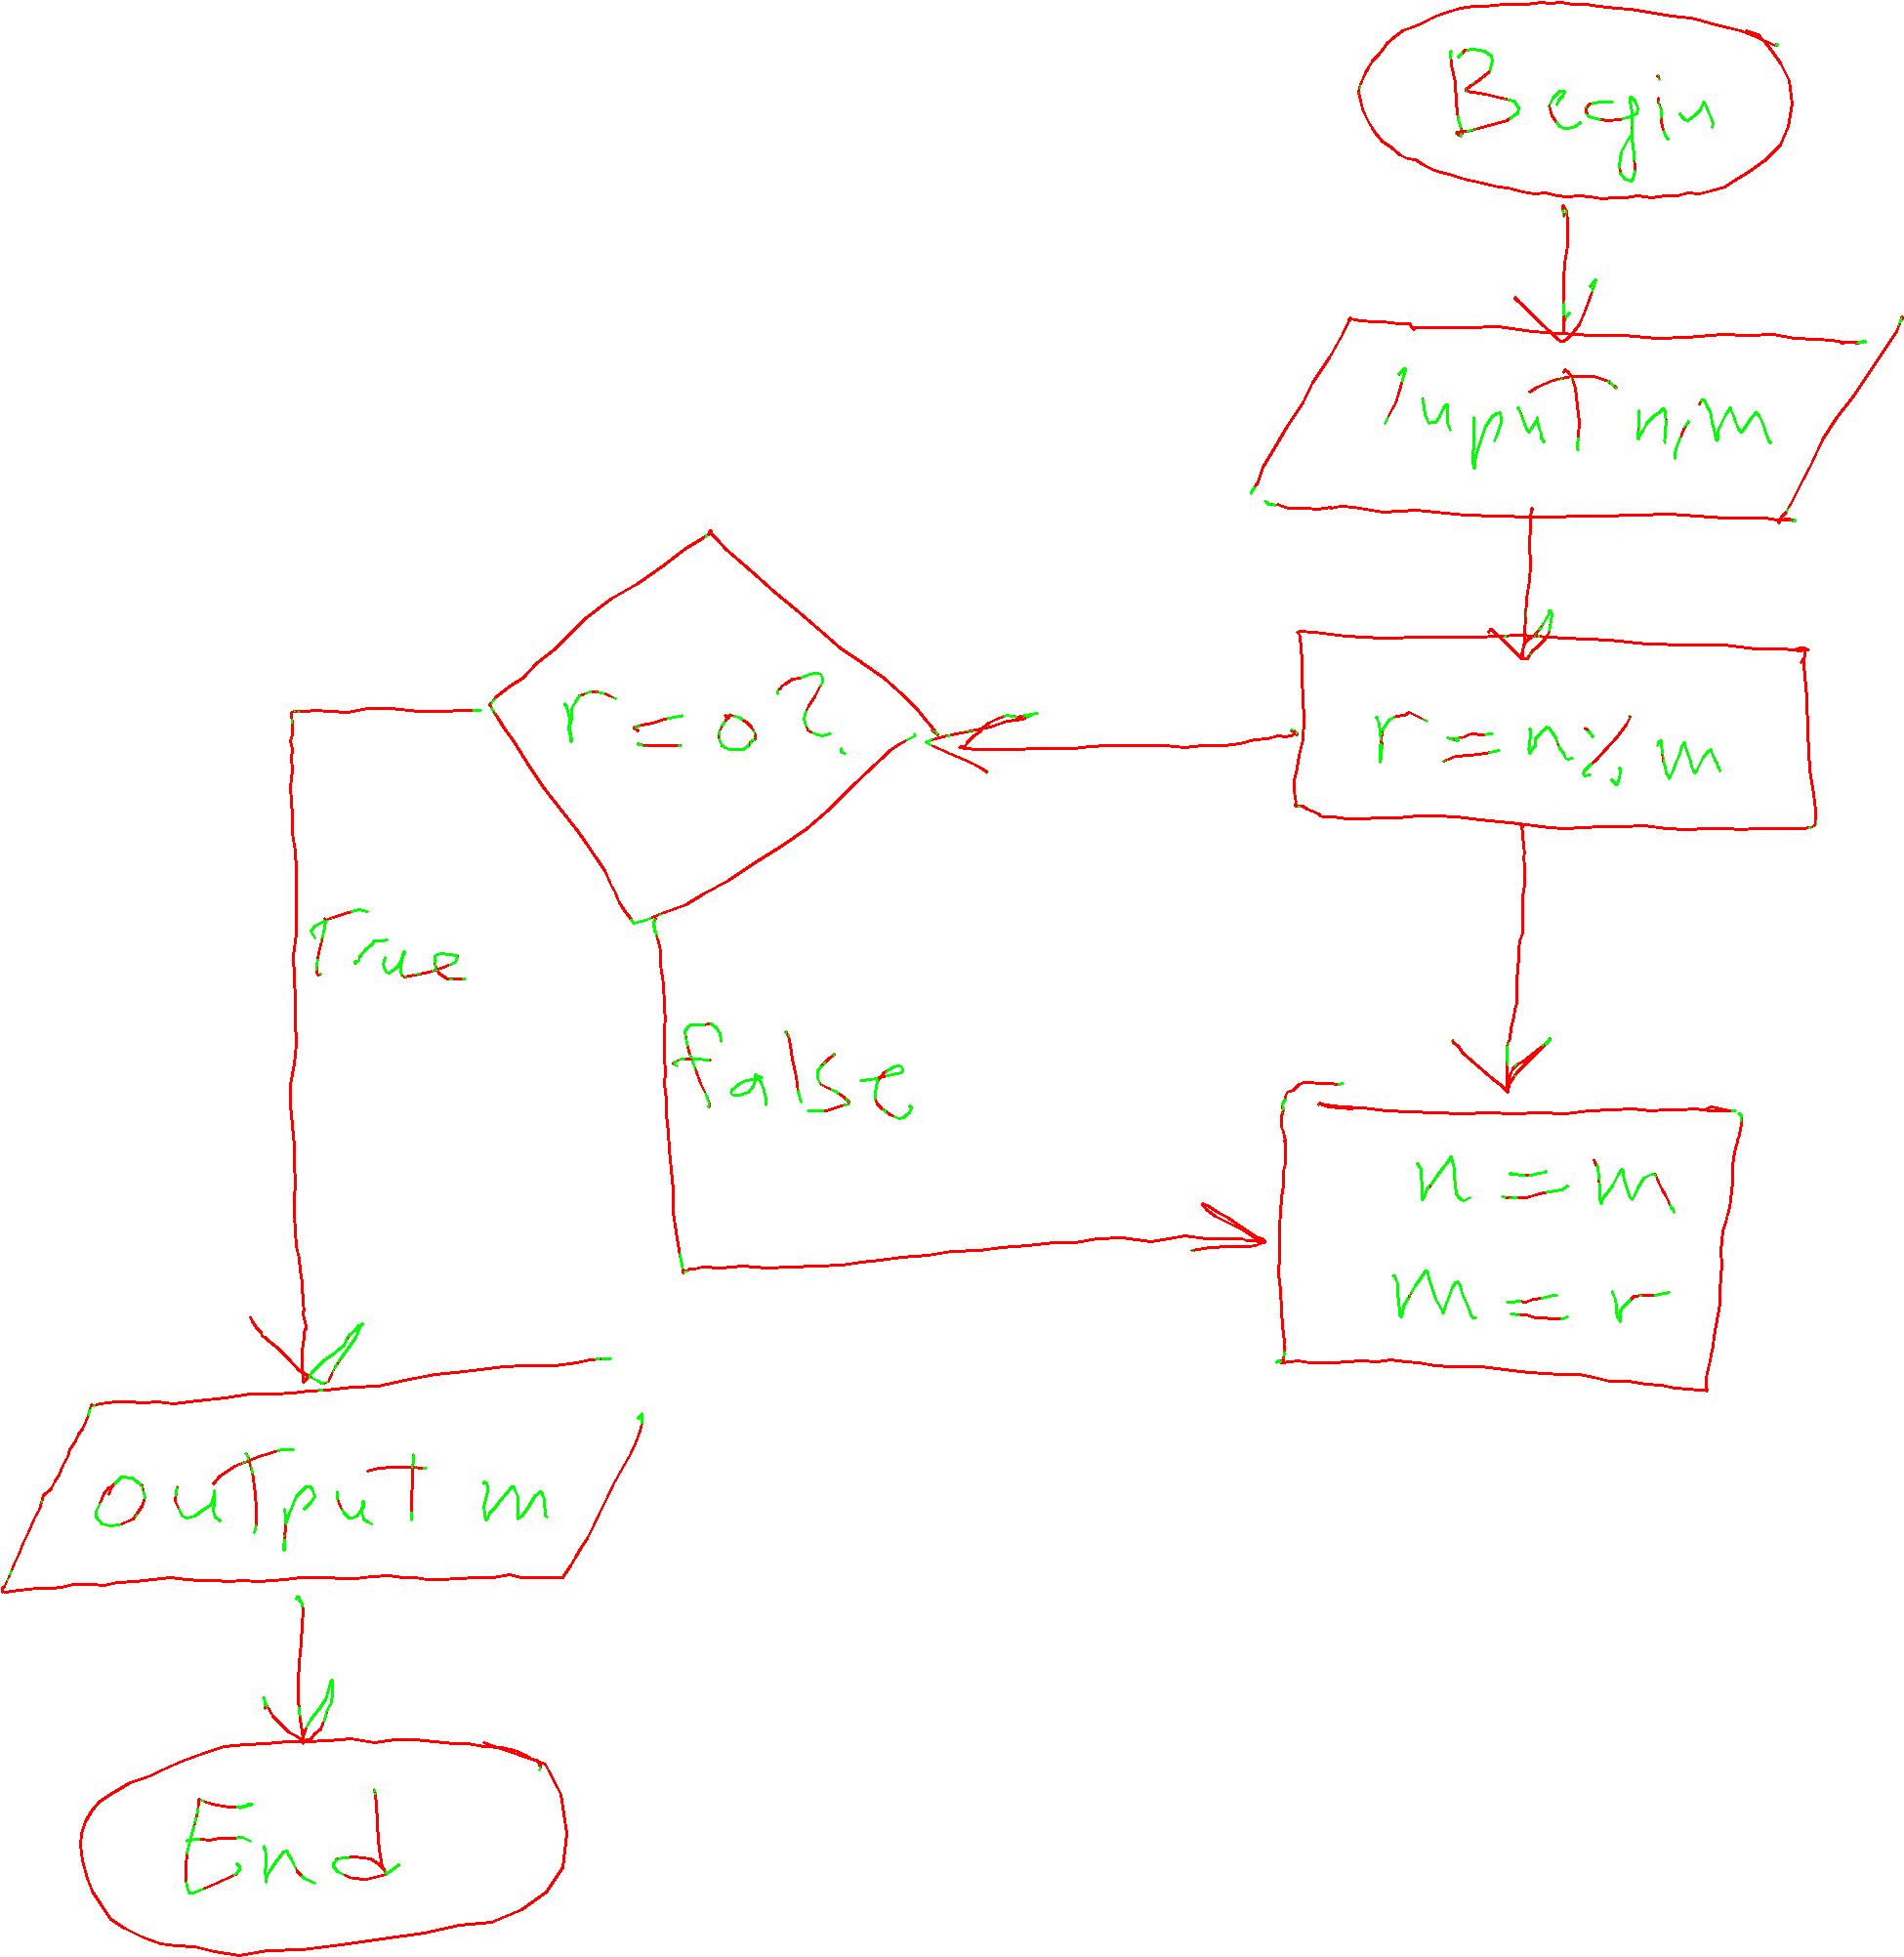 Begin
Input n,m
r = n % m
r = 0 ?
True
false
n = m
m = r
Output m
End